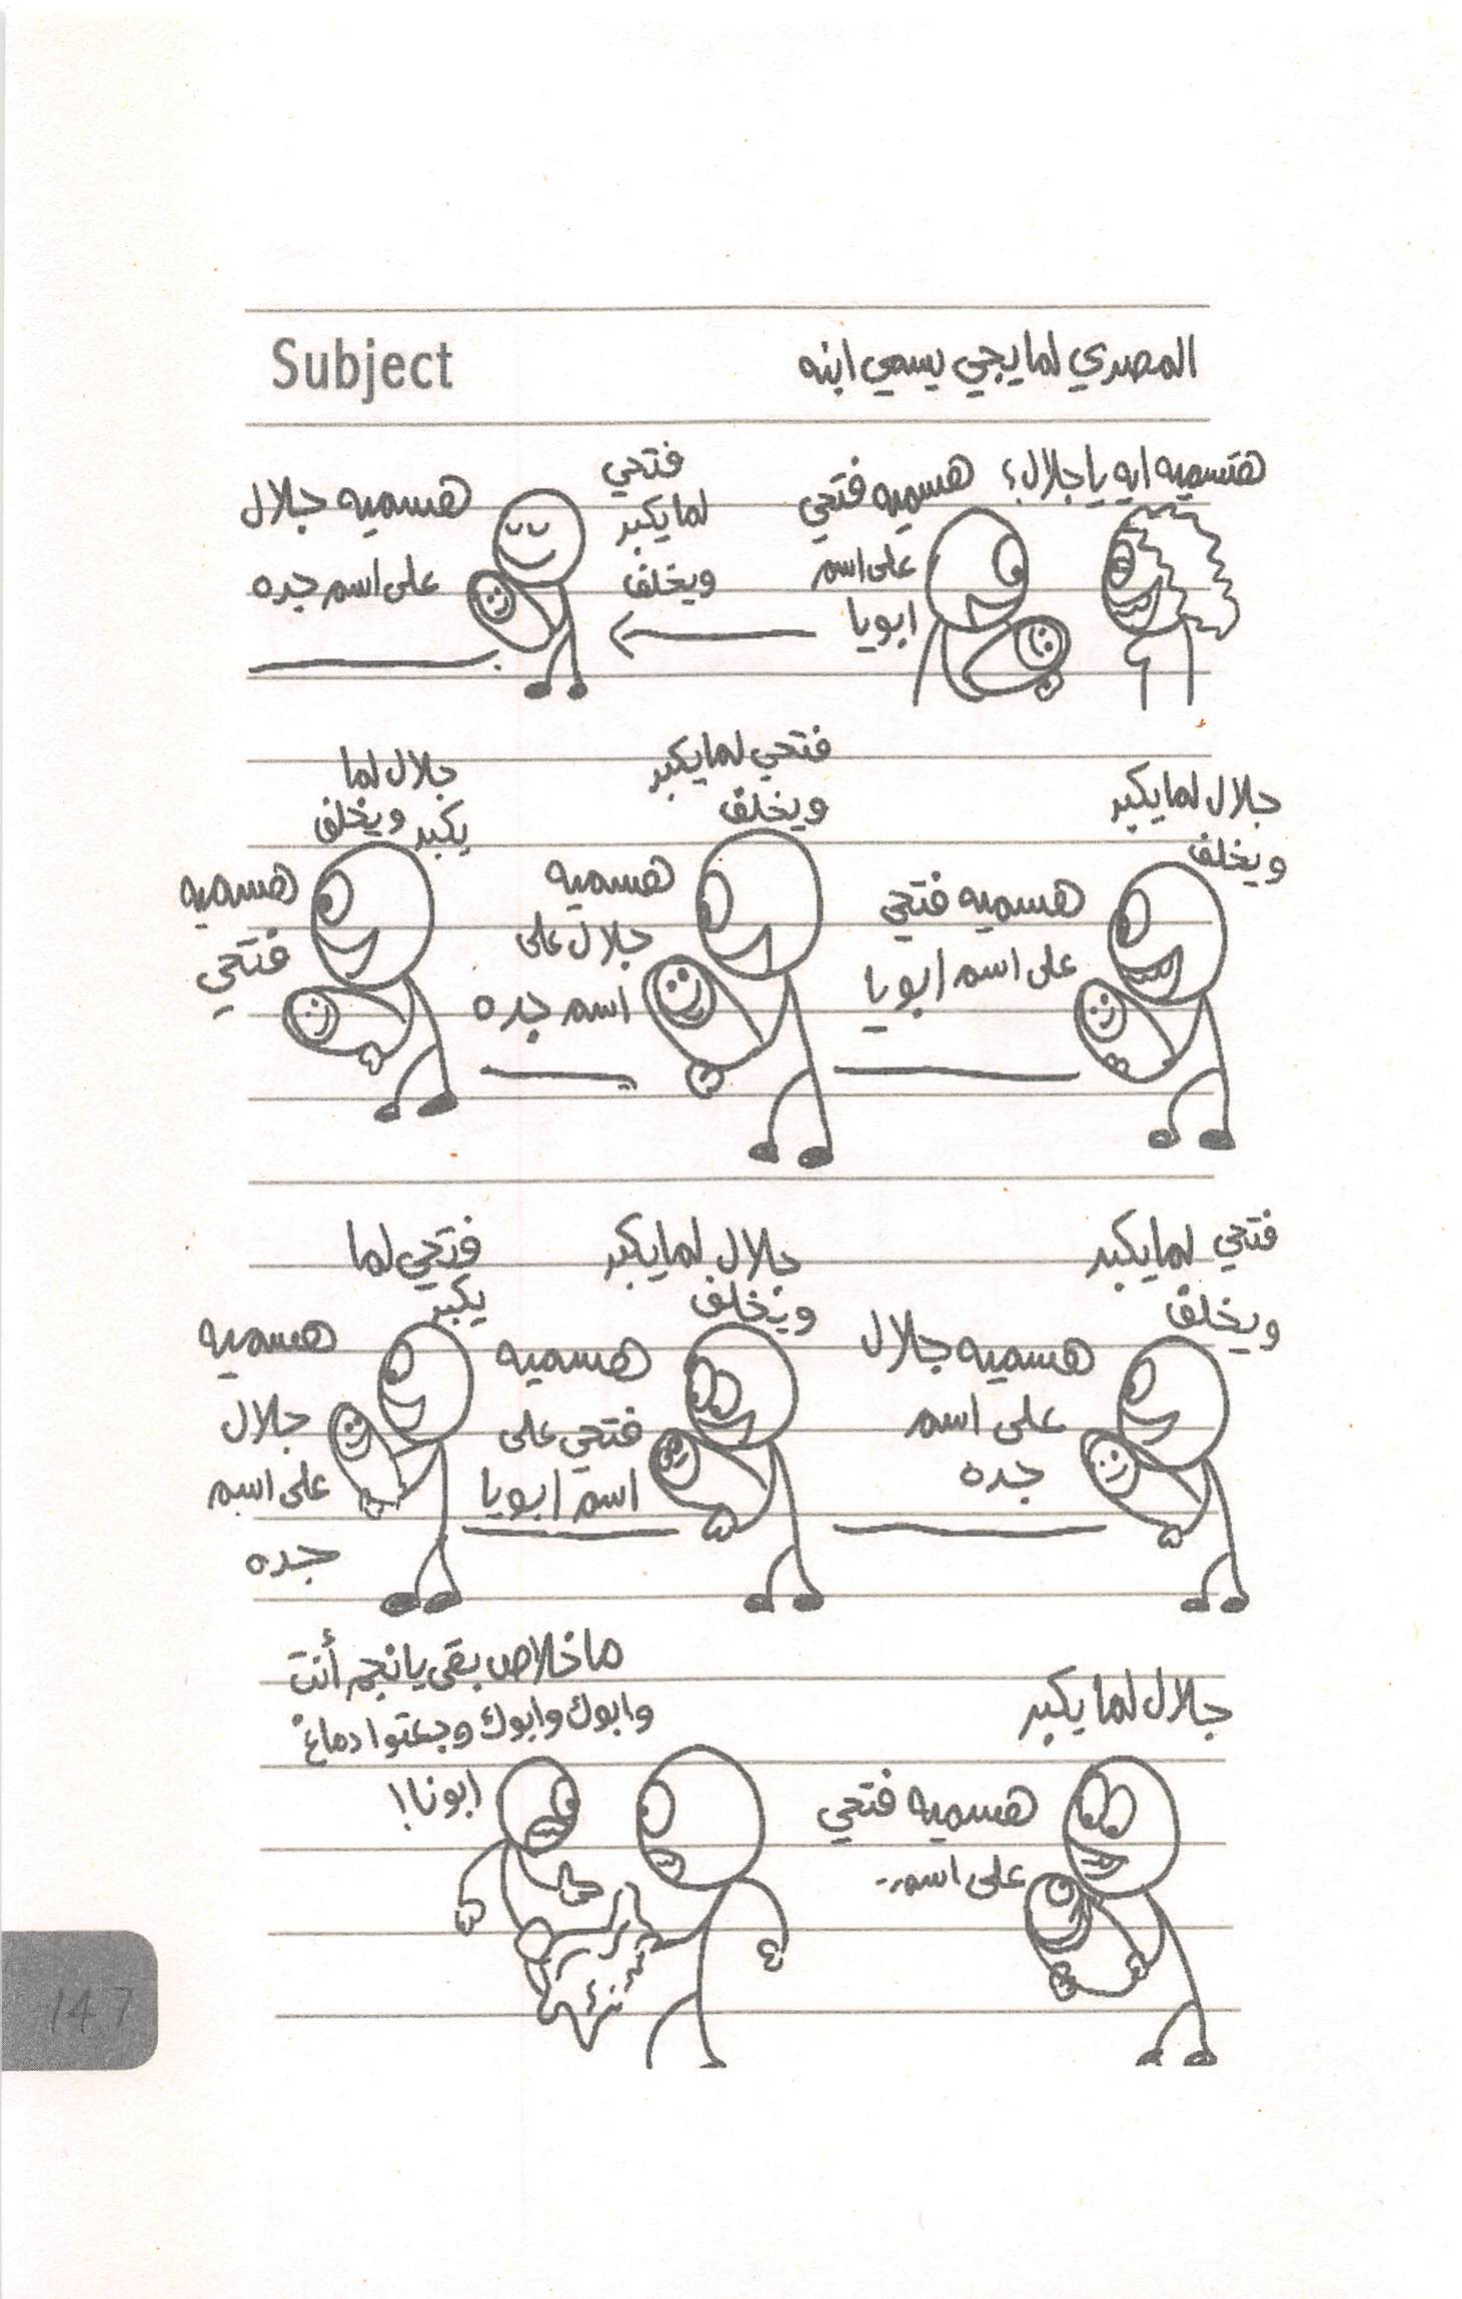 Subject
المصري لما يجي يسمي ابنه
هتسميه ايه يا جلال؟
هسميه فتحي
على اسم
ابويا
فتحي
لما يكبر
ويخلف
هسميه جلال
على اسم جده
جلال لما يكبر
ويخلف
هسميه فتحي
على اسم ابويا
فتحي لما يكبر
ويخلف
هسميه
جلال على
اسم جده
جلال لما
يكبر ويخلف
هسميه
فتحي
فتحي لما يكبر
ويخلف
هسميه جلال
على اسم
جده
جلال لما يكبر
ويخلف
هسميه
فتحي على
اسم ابويا
فتحي لما
يكبر
هسميه
جلال
على اسم
جده
جلال لما يكبر
هسميه فتحي
على اسم..
ما خلاص بقى يا نجم أنت
وابوك وابوك وجعتوا دماغ
ابونا!
147